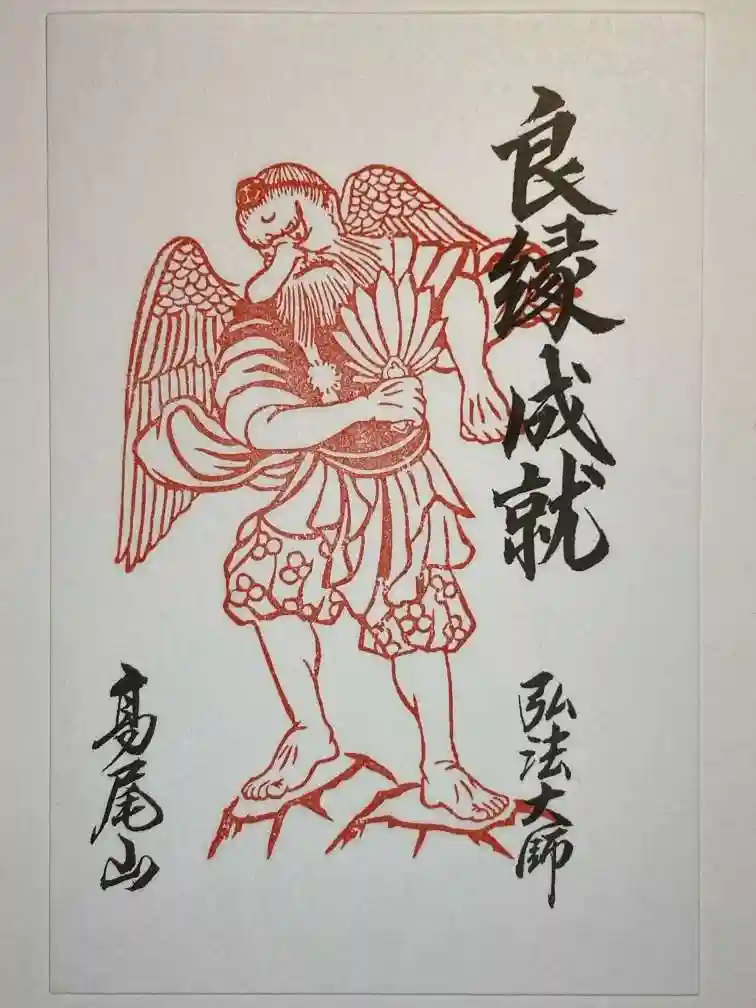 良縁成就
弘法大師
髙尾山